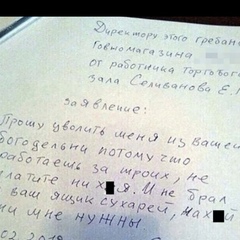 Директору этого гребан
Говномагазина
от работника торгового
зала Селиванова Е.
Заявление:
Прошу уволить меня из вашей
богодельни потому что
работаешь за троих, не
платите ни х я. И не брал
я ваш ящик сухарей, нах й
они мне нужны
02.2018